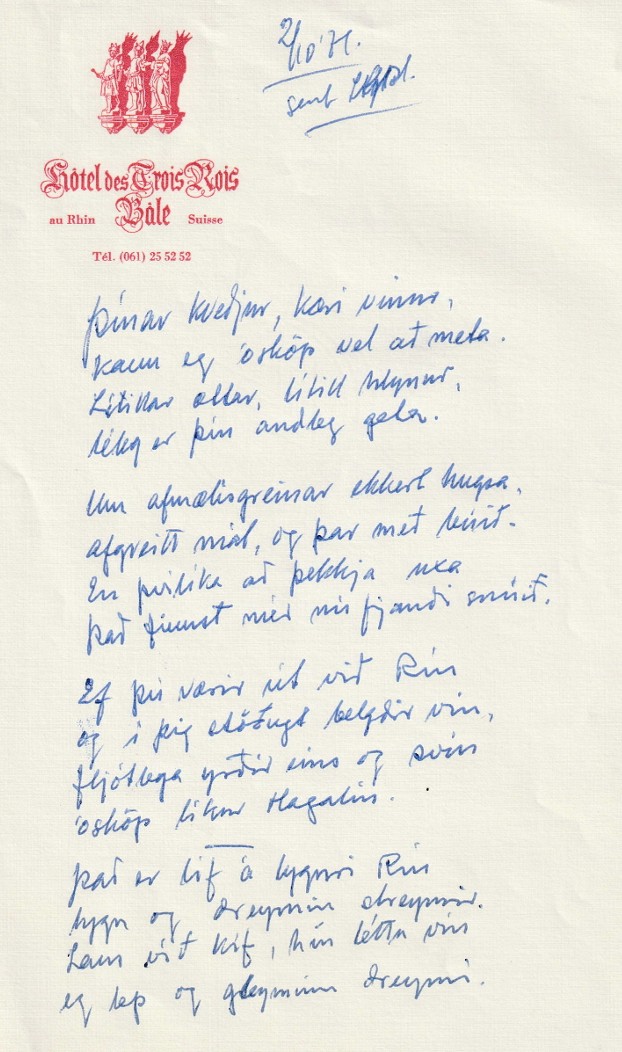 2/10 '71.
sent
Hôtel des Trois Rois
au Rhin Bâle Suisse
Tél. (061) 25 52 52
Þínar kveðjur, kæri vinur,
kann eg óskôp vel að meta.
Lítillar ættar, lítill hlynur,
léleg er þín andleg geta.
Um afmælisgreinar ekkert hugsa,
afgreitt mál, og þar með búið.
En þvílíka að þekkja uxa
það finnst mér nú fjandi snúið.
Ef þú værir út við Rín
og í þig stöðugt belgdir vín,
fljótlega yrðir eins og svín
óskôp líkur Hagalín.
Það er líf á lygnri Rín
lygn og dreymin streymir.
Laus við kíf, hin léttu vín
eg lep og gleyminn dreymi.